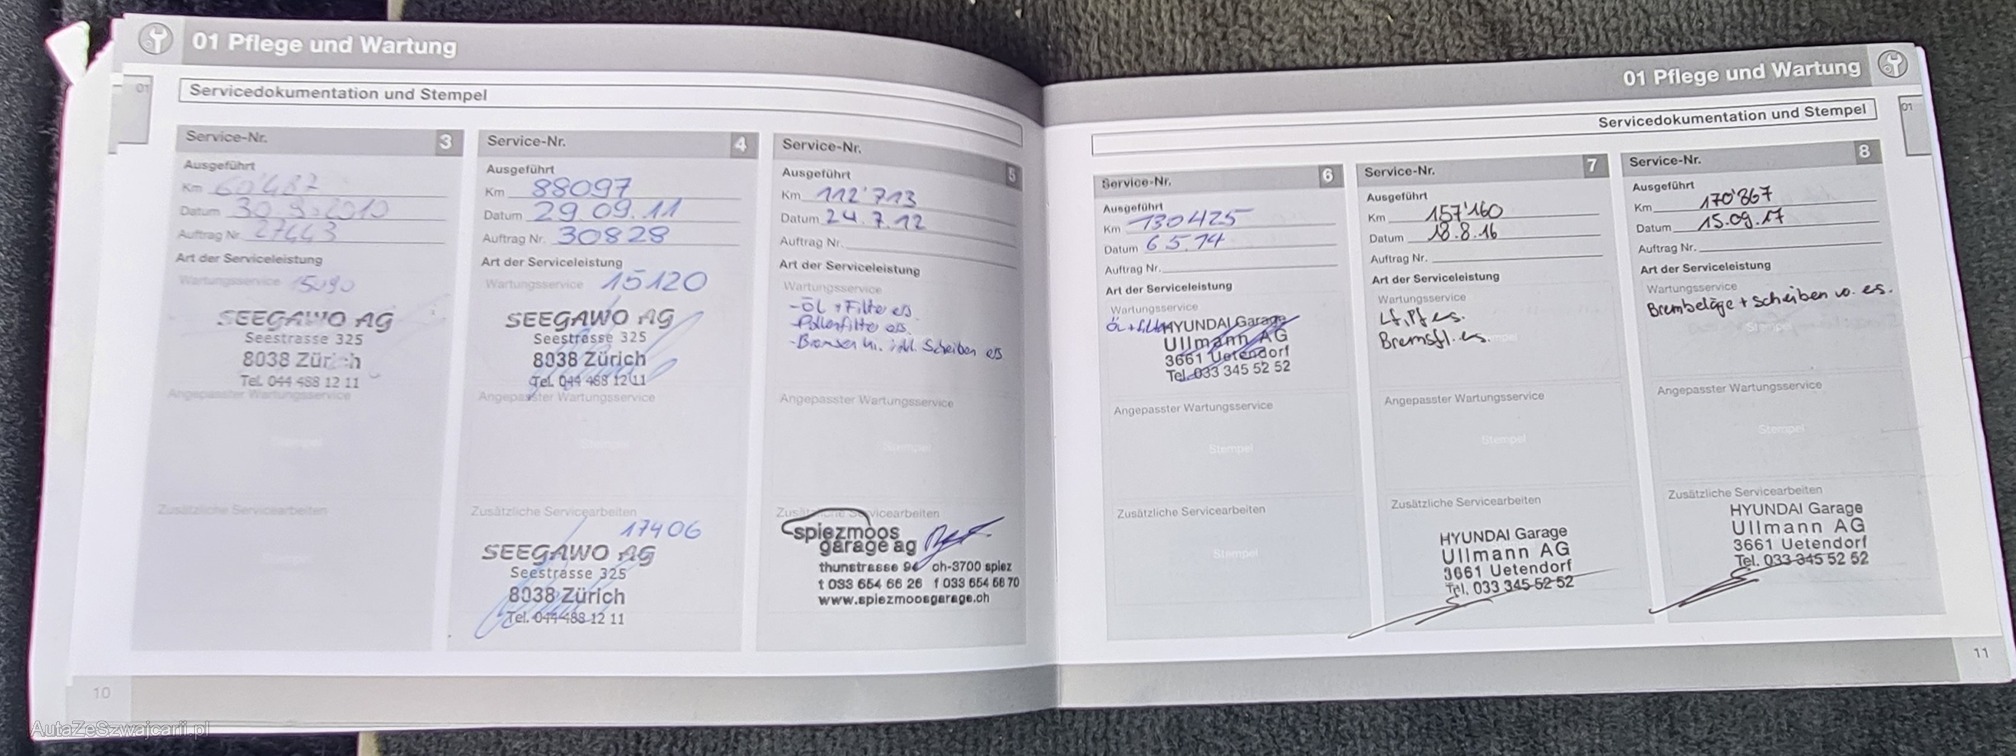 01 Pflege und Wartung
01
Servicedokumentation und Stempel
Service-Nr. 3
Ausgeführt
Km 60'487
Datum 30.9.2010
Auftrag Nr. 27443
Art der Serviceleistung
Wartungsservice 15090
SEEGAWO AG
Seestrasse 325
8038 Zürich
Tel. 044 488 12 11
Angepasster Wartungsservice
Stempel
Zusätzliche Servicearbeiten
Stempel
Service-Nr. 4
Ausgeführt
Km 88097
Datum 29 09.11
Auftrag Nr. 30828
Art der Serviceleistung
Wartungsservice 15120
SEEGAWO AG
Seestrasse 325
8038 Zürich
Tel. 044 488 12 11
Angepasster Wartungsservice
Stempel
Zusätzliche Servicearbeiten
17406
SEEGAWO AG
Seestrasse 325
8038 Zürich
Tel. 044 488 12 11
Service-Nr. 5
Ausgeführt
Km 112'713
Datum 24.7.12
Auftrag Nr.
Art der Serviceleistung
Wartungsservice
- Öl + Filter es
- Pollenfilter es.
- Bremsen hi. inkl. Scheiben es
Angepasster Wartungsservice
Stempel
Zusätzliche Servicearbeiten
spiezmoos
garage ag
thunstrasse 94 ch-3700 spiez
t 033 654 66 26 f 033 654 66 70
www.spiezmoosgarage.ch
10
01 Pflege und Wartung
01
Servicedokumentation und Stempel
Service-Nr. 6
Ausgeführt
Km 130425
Datum 6 5.14
Auftrag Nr.
Art der Serviceleistung
Wartungsservice
Öl + Filter
HYUNDAI Garage
Ullmann AG
3661 Uetendorf
Tel. 033 345 52 52
Angepasster Wartungsservice
Stempel
Zusätzliche Servicearbeiten
Stempel
Service-Nr. 7
Ausgeführt
Km 157'160
Datum 18.8.16
Auftrag Nr.
Art der Serviceleistung
Wartungsservice
Lf, Pf es.
Bremsfl. es.
Angepasster Wartungsservice
Stempel
Zusätzliche Servicearbeiten
HYUNDAI Garage
Ullmann AG
3661 Uetendorf
Tel. 033 345 52 52
Service-Nr. 8
Ausgeführt
Km 170'867
Datum 15.09.17
Auftrag Nr.
Art der Serviceleistung
Wartungsservice
Brembeläge + Scheiben vo. es.
Stempel
Angepasster Wartungsservice
Stempel
Zusätzliche Servicearbeiten
HYUNDAI Garage
Ullmann AG
3661 Uetendorf
Tel. 033 345 52 52
11
AutaZeSzwajcarii.pl